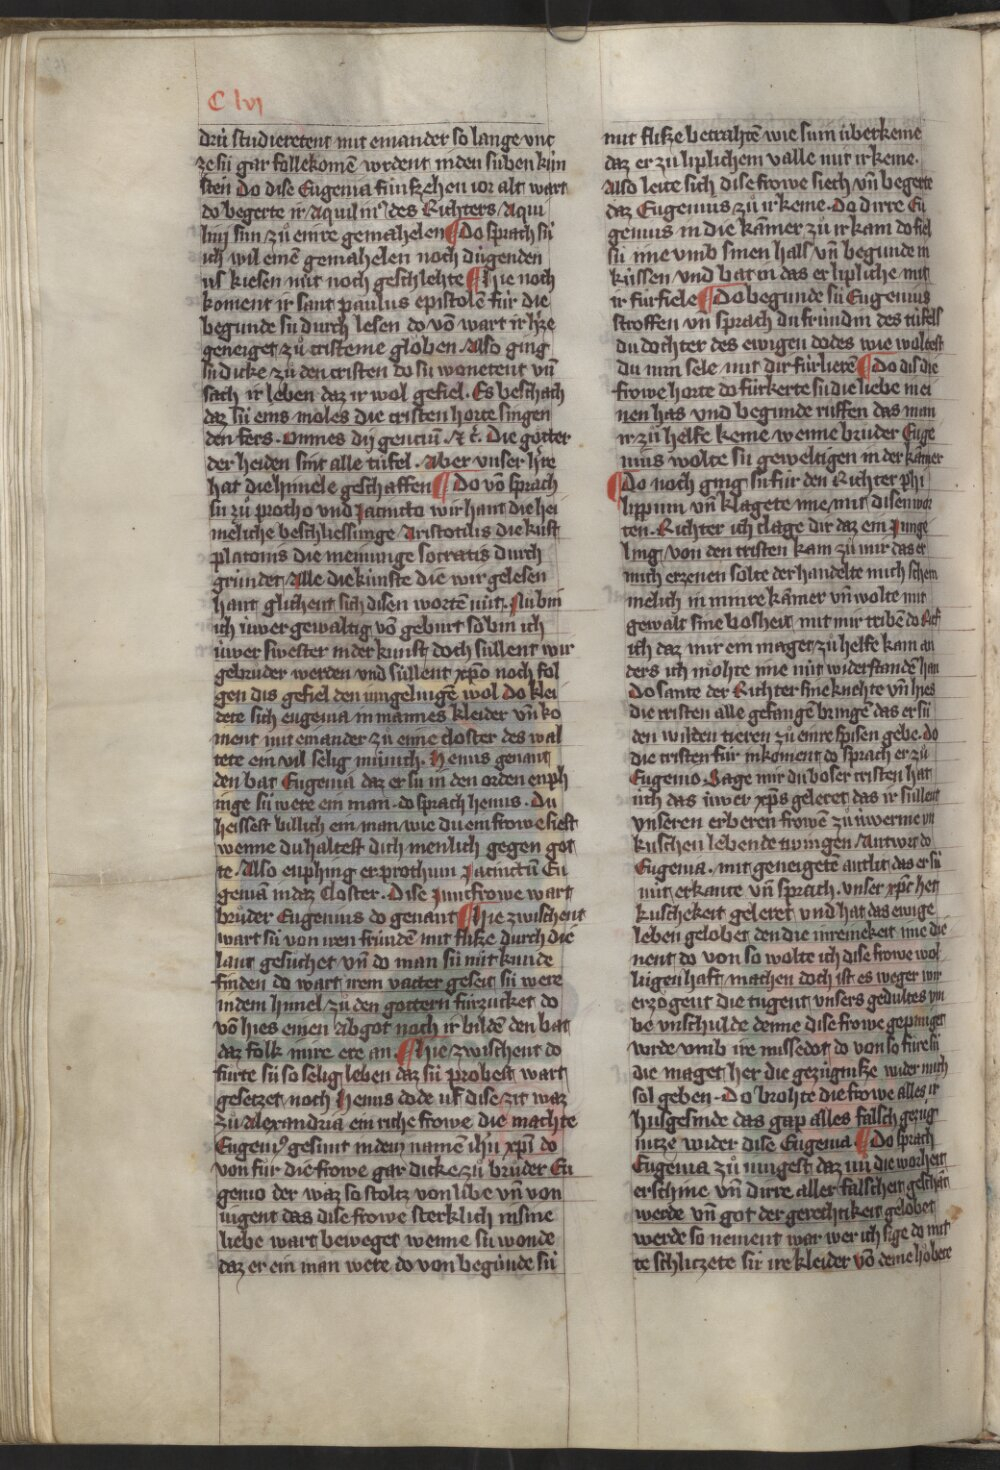 C lvi
drü studieretent mit einander so lange unt
ze sü gar follekomē wrdent in den süben kün
sten Do dise Eugenia fünfzehen ior alt wart
do begerte ir Aquilin⁹ des Richters Aqui
linj sun zů einre gemahelen ¶ Do sprach sü
ich wil einē gemahelen noch dugenden
us kiesen nüt noch geschlehte ¶ Hie noch
koment ir sant paulus epistolē für die
begunde sü durch lesen do vō wart ir h̓ze
geneiget zů cristeme globen. Also ging
sü dicke zů den cristen do su wonetent vn̄
sach ir leben daz ir wol gefiel. Es beschach
daz sü eins moles die cristen horte singen
den fers. Omnes dij genciū. ⁊ c̄. Die goͤtter
der heiden sint alle tüfel. Aber unser h̓re
hat die himele geschaffen ¶ Do vō sprach
sü zů protho und Jacincto wir hant die hei
meliche beschliessunge Aristotilis die kust
platonis die meinunge socratis durch
gründet Alle die künste die wir gelesen
hant glichent sich disen wortē nüt. Nu bin
ich üwer gewaltig vō geburt so bin ich
üwer swester in der kunst doch süllent wir
gebruder werden und süllent xp̄o noch fol
gen dis gefiel den iungelingē wol Do klei
dete sich eugenia in mannes kleider vn̄ ko
ment mit einander zů eime closter des wal
tete ein vil selig münich. Henus genant
den bat Eugenia daz er sü in den orden enph
inge sü wete ein man. do sprach henus. Du
heissest billich ein man wie du ein frowe siest
wenne du haltest dich menlich gegen got
te. Also enphing er prothum Jacinctū Eu
geniā in daz Closter. Dise Juncfrowe wart
brůder Eugenius do genant ¶ Hie zwischent
wart sü von iren fründē mit flisze durch die
lant gesuchet vn̄ do man sü nüt kunde
finden do wart irem vatter geseit sü were
in dem himel zů den goͤttern fürzucket do
vō hies er einen Abgot noch ir bildē den bat
daz folk mire ere an. ¶ Hie zwischent do
fürte sü so selig leben daz sü probest wart
gesetzet noch Henus dode uf dise zit waz
zů Alexandria ein riche frowe die machte
Eugeni⁹ gesunt in dem namē ih̄u xp̄i do
von fůr die frowe gar dicke zů brůder Eu
genio der waz so stoltz von libe vn̄ von
iugent das dise frowe sterklich in sine
liebe wart beweget wenne sü wonde
daz er ein man wete do von begunde sü
mit flisze betrahtē wie su in überkeme
daz er zu liplichem valle mit ir keme.
Also leite sich dise frowe siech vn̄ begerte
daz Eugenius zů ir keme. Do dirre Eu
genius in die kāmer zů ir kam do fiel
sü ime umb sinen hals vn̄ begunde in
küssen und bat in das er lipliche mit
ir fürfiele ¶ Do begunde sü Eugenius
stroffen vn̄ sprach du fründin des tüfels
du dochter des ewigen dodes wie woltest
du min sele mit dir fürlierē ¶ Do dis die
frowe horte do fürkerte sü die liebe in ei
nen has und begunde ruffen das man
ir zů helfe keme wenne brůder Euge
nius wolte sü geweltigen in der kāmer
¶ Do noch ging sü für den Richter phi
lippum vn̄ klagete ime mit disen wor
ten. Richter ich clage dir daz ein Junge
ling von den cristen kam zů mir das er
mich erzenen solte der handelte mich schem
melich in minre kāmer vn̄ wolte mit
gewalt sine bosheit mit mir tribē do Rief
ich daz mir ein maget zu helfe kam an
ders ich moͤhte ime nüt widerstandē han
Do sante der Richter sine knehte vn̄ hies
die cristen alle gefangē bringē das er sü
den wilden tieren zů einre spisen gebe. Do
die cristen für in koment do sprach er zů
Eugenio. Sage mir du boser cristen hat
üch das üwer xp̄s geleret das ir süllent
unseren erberen frowē zů üwerme un
kuschen lebende twingen Antwurt do
Eugenia. mit geneigetē antlit das er sü
nüt erkante vn̄ sprach. unser xp̄c het
kuschekeit geleret und hat das ewige
leben gelobet den die in reinekeit ime die
nent do von so wolte ich dise frowe wol
lügenhaft machen doch ist es weger wir
erzoͤgent die tugent unsers gedultes um
be unschulde denne dise frowe gepiniget
wrde umb ire missedot do von so füre sü
die maget her die gezügnisze wider mich
sol geben. Do brohte die frowe alles ir
husgesinde das gap alles falsch gezüg
nisze wider dise Eugenia ¶ Do sprach
Eugenia zů iungest daz nu die worheit
erschine vn̄ dirre aller falscheit geschant
werde vn̄ got der gerechtikeit gelobet
werde so nement war wer ich sige do mit
te schliczete sü ire kleider vō deme hoͤbete